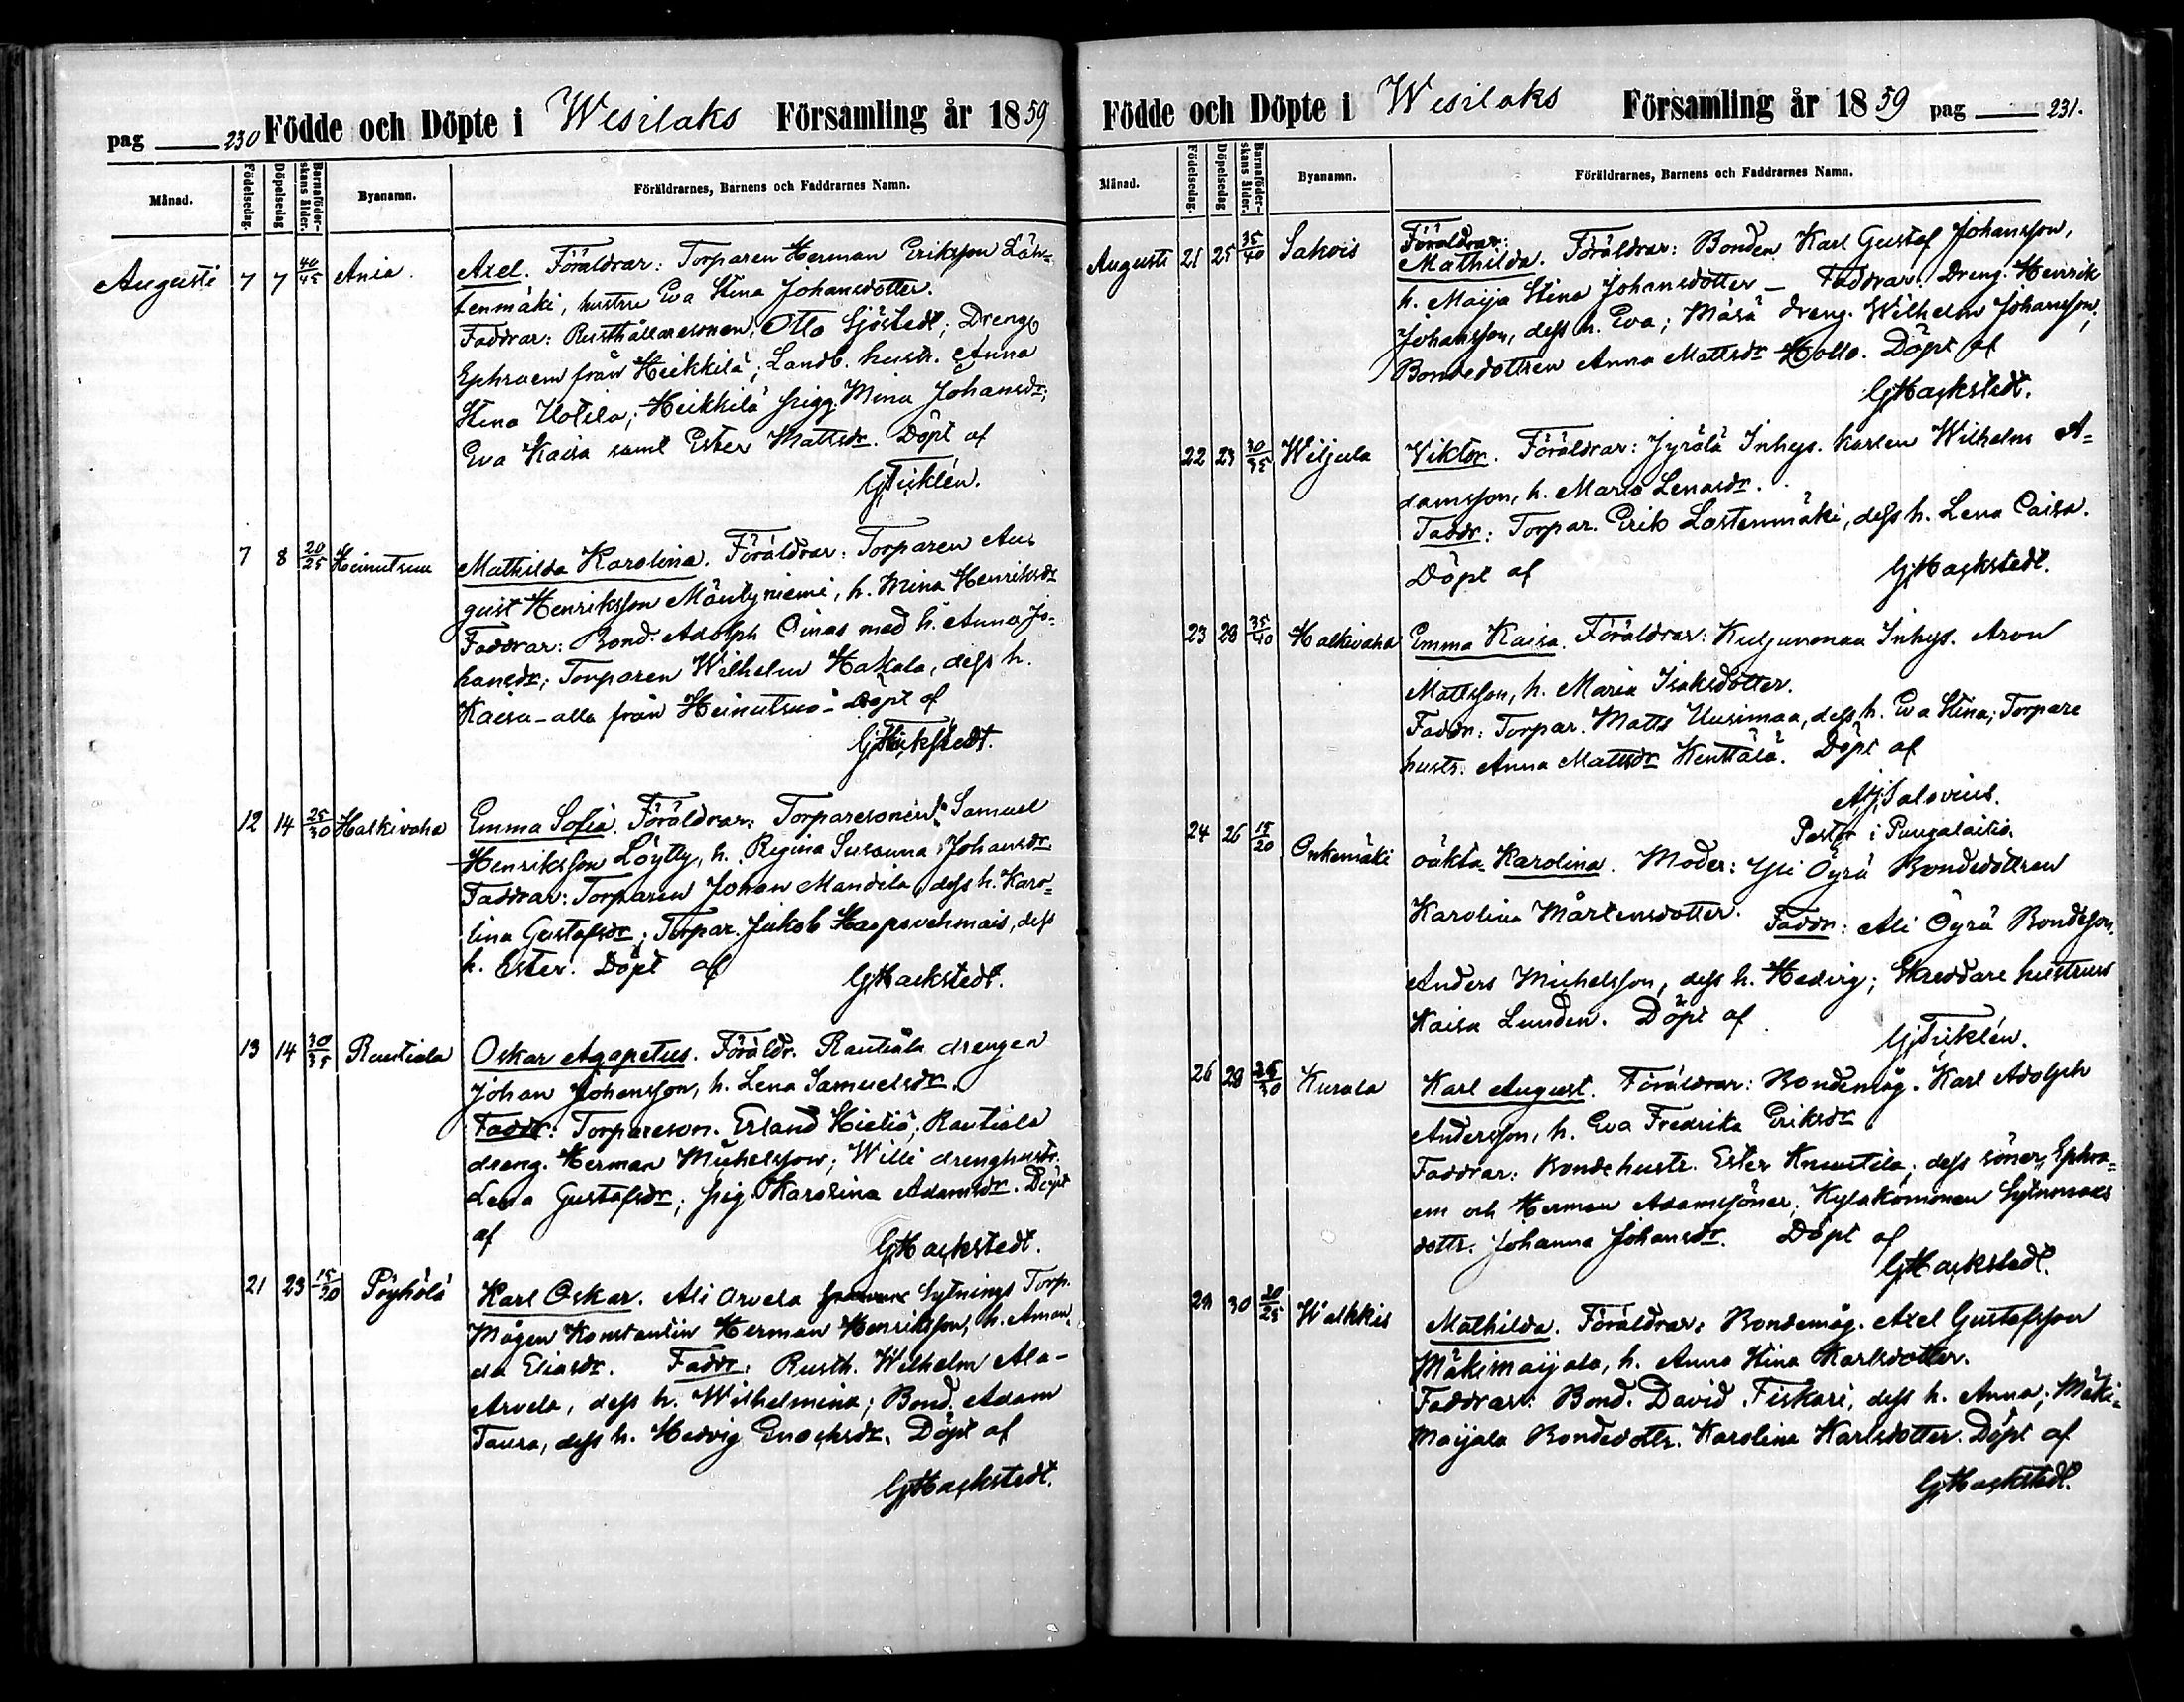 pag 230 Födde och Döpte i Wesilaks Församling år 1859
Månad. Födelsedag. Döpelsedag Barnaföderskans ålder. Byanamn. Föräldrarnes, Barnens och Faddrarnes Namn.
Augusti 7 7 40/45 Ania. Axel. Föräldrar: Torparen Herman Eriksson Läh=
tenmäki, hustru Eva Stina Johansdotter.
Faddrar: Rusthållaresonen, Otto Sjöstedt; Dreng
Ephraem från Heikkilä; Landb. hustr. Anna
Stina Uotila; Heikkilä pigg. Mina Johansdr;
Eva Kaisa samt Ester Mattsdr. Döpt af
G Ticklén.
7 8 20/25 Heinutsuu Mathilda Karolina. Föräldrar: Torparen Au=
gust Henriksson Mäntyniemi, h. Mina Henriksdr
Faddrar: Bond. Adolph Oinas med h. Anna Jo=
hansdr; Torparen Wilhelm Hakala, dess h.
Kaisa - alla från Heinutsuo - Döpt af
G Hackstedt.
12 14 25/30 Halkivaha Emma Sofia. Föräldrar: Torparesonen Samuel
Henriksson Löytty, h. Regina Susanna Johansdr
Faddrar: Torparen Johan Mandila, dess h. Karo=
lina Gustafsdr; Torpar. Jakob Haapavehmais, dess
h. Ester. Döpt af G Hackstedt.
13 14 30/35 Rautiala Oskar Agapetus. Föräldr. Rautiala drengen
Johan Johansson, h. Lena Samuelsdr.
Faddr: Torpareson. Erland Hietiö; Rautiala
dreng. Herman Michelsson; Willi drenghustr.
Lena Gustafsdr; pig. Karolina Adamsdr. Döpt
af
G Hackstedt.
21 23 15/30 Pöyhölä Karl Oskar. Ali Arvela Sytnings Torp.
Mågen Konstantin Herman Henriksson, h. Aman
da Eliasdr. Faddr: Rusth. Wilhelm Ala-
Arvela, dess h. Wilhelmina; Bond. Adam
Taura, dess h. Hedvig Enochsdr. Döpt af
G Hackstedt.
Födde och Döpte i Wesilaks Församling år 1859 pag 231.
Månad. Födelsedag. Döpelsedag Barnaföderskans ålder. Byanamn. Föräldrarnes, Barnens och Faddrarnes Namn.
Föräldrar:
Augusti 21 25 35/40 Sakois Mathilda. Föräldrar: Bonden Karl Gustaf Johansson,
h. Maija Stina Johansdotter - Faddrar: Dreng. Henrik
Johansson, dess h. Eva; Måsä dreng. Wilhelm Johansson;
Bondedottren Anna Mattsdr Hollo. Döpt af
G Hackstedt.
22 23 30/35 Wiljula Viktor. Föräldrar: Jyrälä Inhys. karlen Wilhelm A=
damsson, h. Maria Lenasdr.
Faddr: Torpar. Erik Lastenmäki, dess h. Lena Caisa.
Döpt af G Hackstedt.
23 29 35/40 Halkivaha Emma Kaisa. Föräldrar: Kuljunmaa Inhys. Aron
Mattsson, h. Maria Isaksdotter.
Faddr: Torpar. Matts Uusimaa, dess h. Eva Stina; Torpare
hustr. Anna Mattsdr Kenttälä. Döpt af
A J Salovius.
Pastor i Pungalaitio.
24 26 15/20 Onkemäki oäkta Karolina. Moder: Yli Öyrä Bondedottren
Karolina Mårtensdotter. Faddr: Ali Öyrä Bondeson.
Anders Michelsson, dess h. Hedvig; Skreddare hustrun
Kaisa Lunden. Döpt af
G Ticklén.
26 29 25/30 Kurala Karl August. Föräldrar: Bondemåg. Karl Adolph
Andersson, h. Eva Fredrika Eriksdr
Faddrar: Bondehustr. Ester Knuutila; dess söner, Ephra=
em och Herman Adamssöner; Kyläkomonen Sytnmans
dottr. Johanna Johansdr. Döpt af
G Hackstedt.
29 30 20/25 Walkkis Mathilda. Föräldrar: Bondemåg. Axel Gustafsson
Mäkimaijala, h. Anna Stina Karlsdotter.
Faddrar: Bond. David Fiskari, dess h. Anna; Mäki=
Maijala Bondedottr. Karolina Karlsdotter. Döpt af
G Hackstedt.